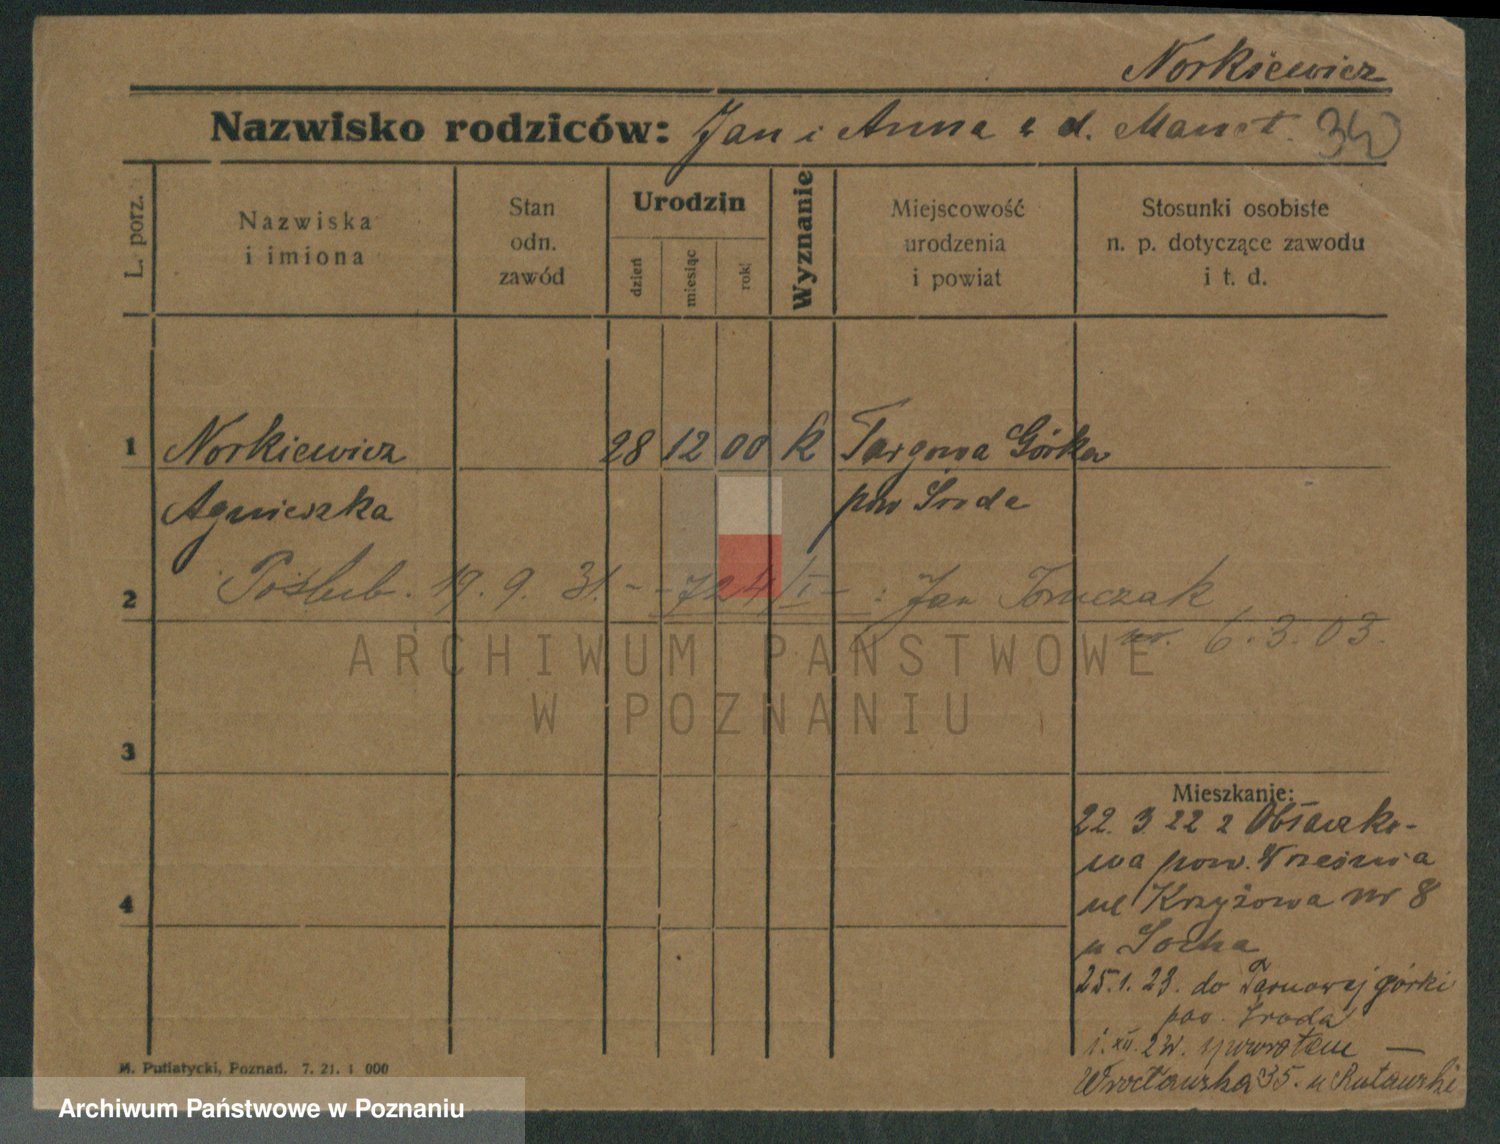 Norkiewicz
Nazwisko rodziców: Jan i Anna z d.
340
L. porz.
Nazwiska
i imiona
Stan
odn.
zawód
Urodzin
dzień
miesiąc
rok
Wyznanie
Miejscowość
urodzenia
i powiat
Stosunki osobiste
n. p. dotyczące zawodu
i t. d.
1 Norkiewicz 28 12 00 k Targowa Górka
Agnieszka pow Środa
2 Poślub. 19. 9. 31. - - 724/I - : Jan Tomczak
ur. 6.3.03.
3
Mieszkanie:
22. 3. 22 z Obłaczko-
wa pow. Września
ul Krzyżowa nr 8
u Socha
4
25.1.23. do Tarnowej górki
pow. Środa
spowrotem —
Wrocławska 35. u
M. Putiatycki, Poznań. 7. 21. 1 000
ARCHIWUM PAŃSTWOWE
W POZNANIU
Archiwum Państwowe w Poznaniu